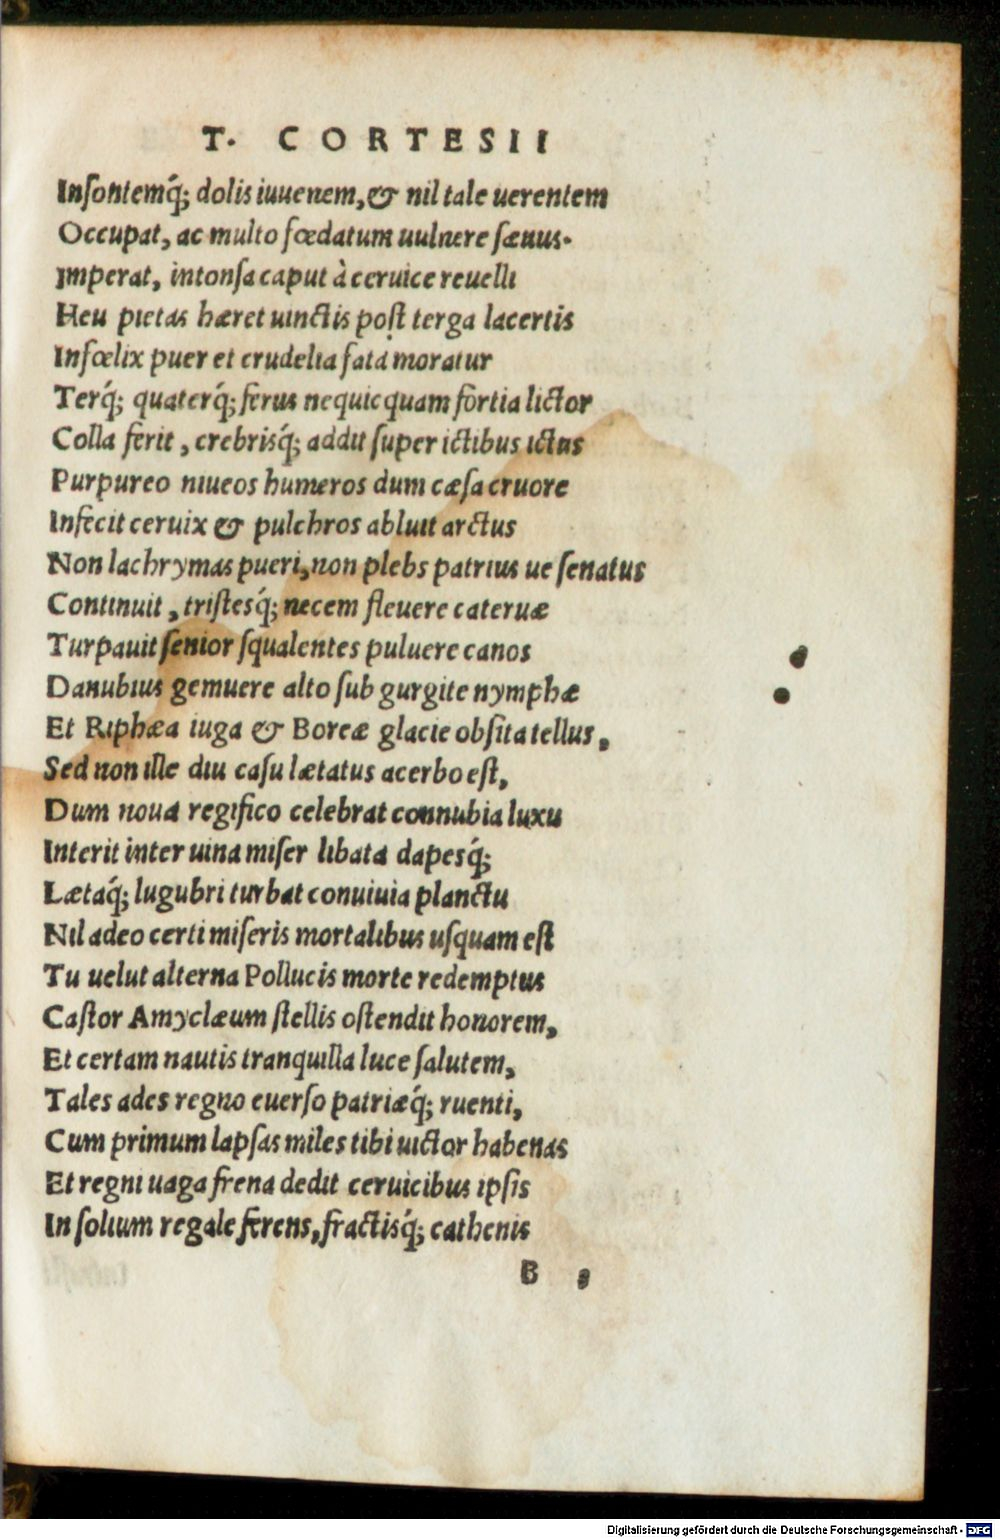 T. CORTESII
Insontemq́; dolis iuuenem, & nil tale uerentem
Occupat, ac multo fœdatum uulnere sæuus.
Imperat, intonsa caput à ceruice reuelli
Heu pietas hæret uinctis post terga lacertis
Infœlix puer et crudelia fata moratur
Terq́; quaterq́; ferus nequicquam fortia lictor
Colla ferit, crebrisq́; addit super ictibus ictus
Purpureo niueos humeros dum cæsa cruore
Infecit ceruix & pulchros abluit arctus
Non lachrymas pueri, non plebs patrius ue senatus
Continuit, tristesq́; necem fleuere cateruæ
Turpauit senior squalentes puluere canos
Danubius gemuere alto sub gurgite nymphæ
Et Riphæa iuga & Boreæ glacie obsita tellus,
Sed non ille diu casu lætatus acerbo est,
Dum noua regifico celebrat connubia luxu
Interit inter uina miser libata dapesq́;
Lætaq́; lugubri turbat conuiuia planctu
Nil adeo certi miseris mortalibus usquam est
Tu uelut alterna Pollucis morte redemptus
Castor Amyclæum stellis ostendit honorem,
Et certam nautis tranquilla luce salutem,
Tales ades regno euerso patriæq́; ruenti,
Cum primum lapsas miles tibi uictor habenas
Et regni uaga frena dedit ceruicibus ipsis
In solium regale ferens, fractisq́; cathenis
B
Digitalisierung gefördert durch die Deutsche Forschungsgemeinschaft - DFG